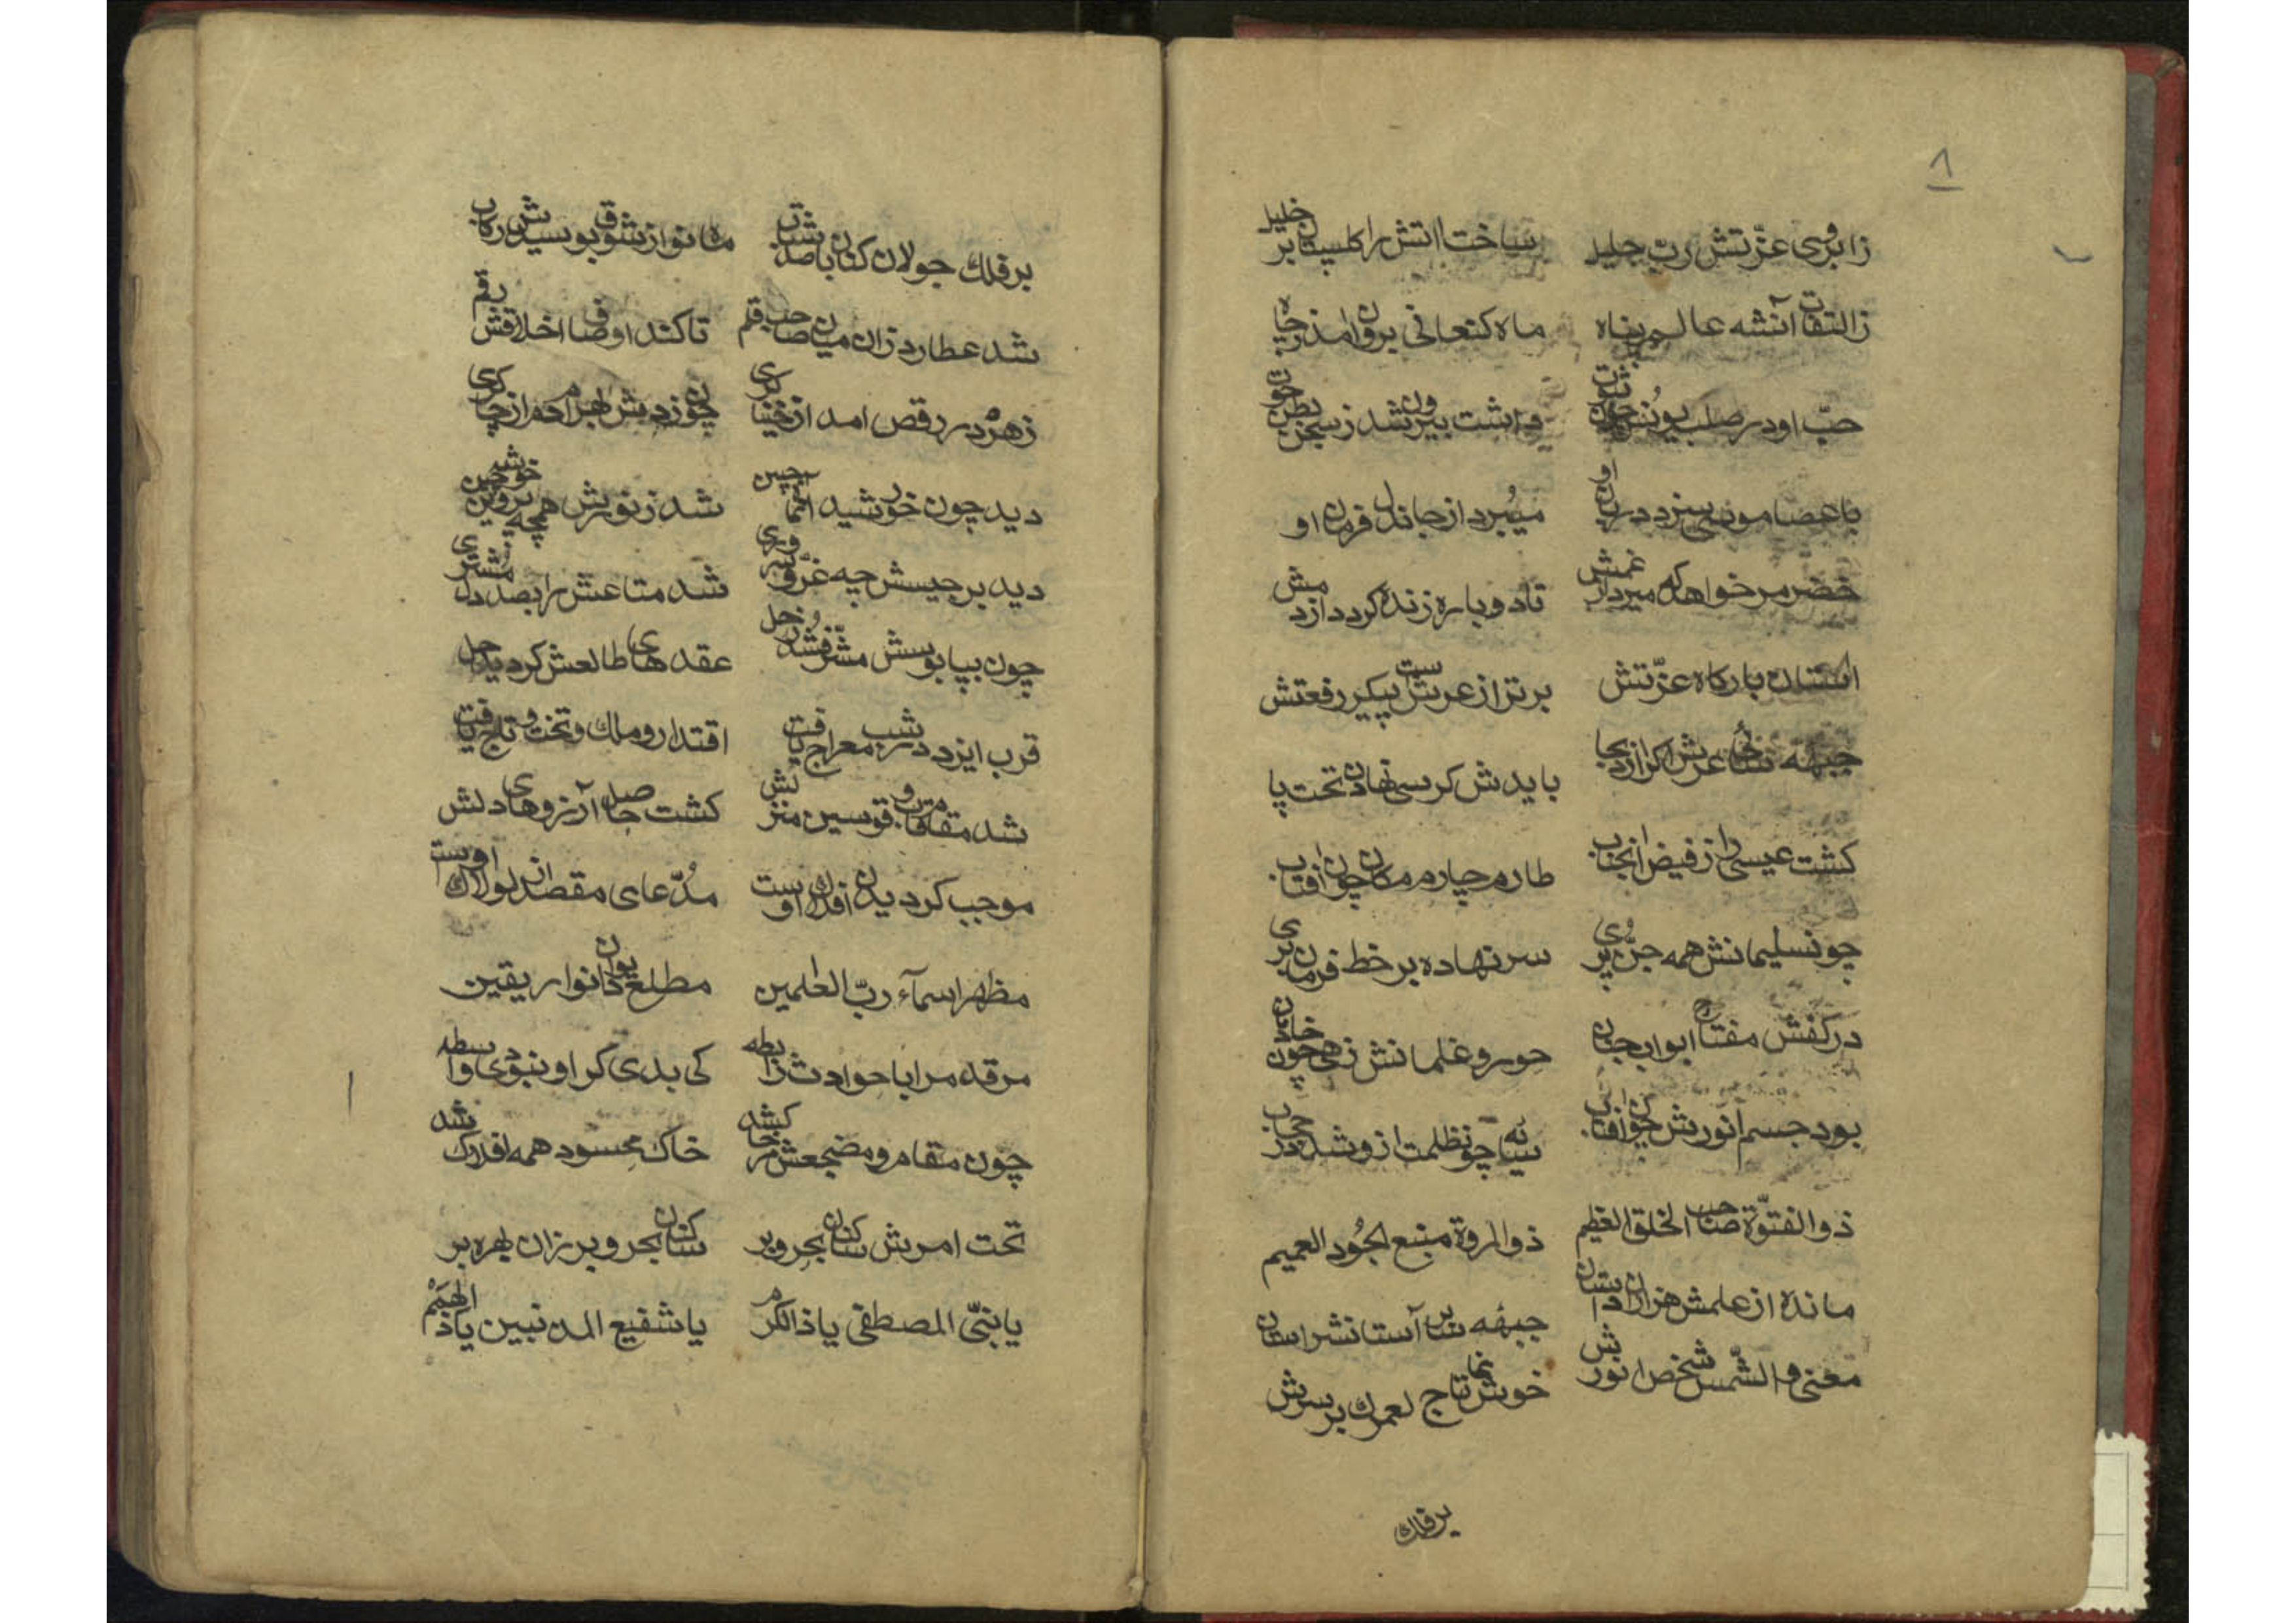 ۸
ز ابروی عزّتش ربّ جلیل ساخت اتش را کلستان بر خلیل
ز التفات آنشه عالم پناه ماه کنعانی برون امد ز چاه
حبّ او در صلب یونس چون شدن داشت بیرون شد ز سجن بطن حون
با عصا موسی سزد دربان او میبرد از جان دل فرمان او
خضر مر خواهد که میرد از غمش تا دوباره زنده کردد از دمش
استان بارکاه عزّتش برتر از عرش ست پیکر رفعتش
جبهه عرش اکر ارد بجا بایدش کرسی نهادن تحت پا
کشت عیسی را ز فیض انجناب طارم چارم مکان چون افتاب
چون سلیمانش همه جنّ و پری سر نهاده بر خط فرمان بری
در کفش مفتاح ابواب جنان حور و غلمانش زهی چون خادمان
بود جسم انورش چون افتاب سایه چو نظلمت ازو شد در حجاب
ذو الفتوّة صاحب الخلق العظیم ذو المروة منبع الجُود العمیم
مانده از علمش هزاران داستان جبهه سای آستانش راستان
معنی و الشّمس شخص انورش خوش نما تاج لعمرك بر سرش
بر فلك
بر فلك جولان کنان باصد شتاب ماه نو از شوق بوسیدش رکاب
شد عطارد زان میان صاحب قلم تا کند اوصاف اخلاقش رقم
زهره در رقص امد از خنیا کری چون زدش بهرام دم از چاکری
دید چون خورشید انما جبین شد ز نورش همچه پروین خوشه چین
دید برجیسش چه غرّ و سروری شد متاعش را بصد دل مشتری
چون بپابوسش مشرّف شد زحل عقد های طالعش کردید حل
قرب ایزد در شب معراج یافت اقتدار و ملك و تخت و تاج یافت
شد مقام قاب و قوسین منزلش کشت حاصل آرزو های دلش
موجب کردیدن افلاك اوست مُدّعای مقصد از لولاك اوست
مظهر اسمآء ربّ العلمین مطلع دیوان انوار یقین
مر قدم را با حوادث رابطه کی بدی کر او نبودی واسطه
چون مقام و مضجعش مر خاك کشته خاك محسود همه افلاك شد
تحت امرش ساکنان بحر و بر ساکنان بحر و بر زان بهره بر
یا نبیّ المصطفی یا ذا الکرم یا شفیع المذنبین یا ذا الهمم